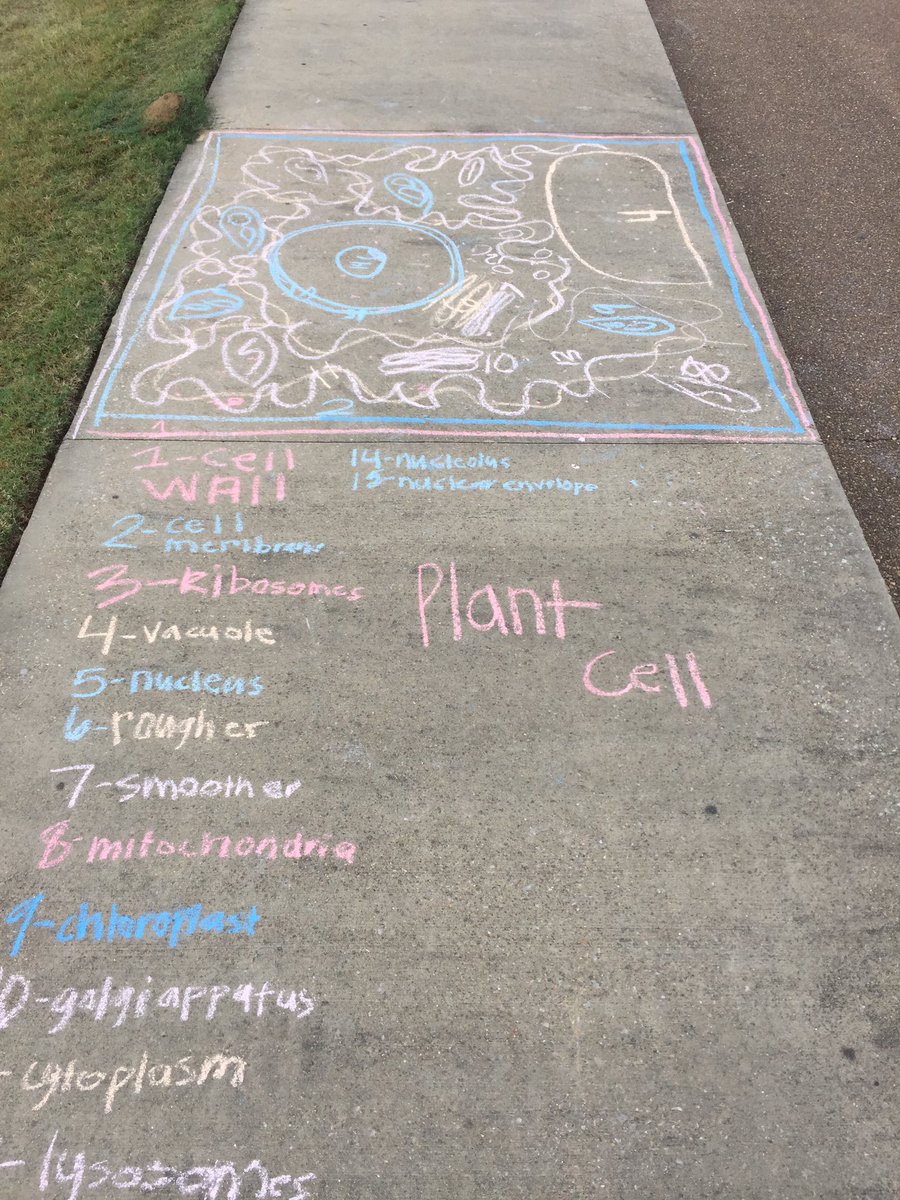 4
10
2
1
1-cell
WAll
14-nucleolus
13-nuclear envelope
2-cell
membrane
3-Ribosomes
4-vacuole
5-nucleus
6-rough er
7-smooth er
8-mitochondria
9-chloroplast
10-golgi appatus
-cytoplasm
-lysosomes
Plant
Cell